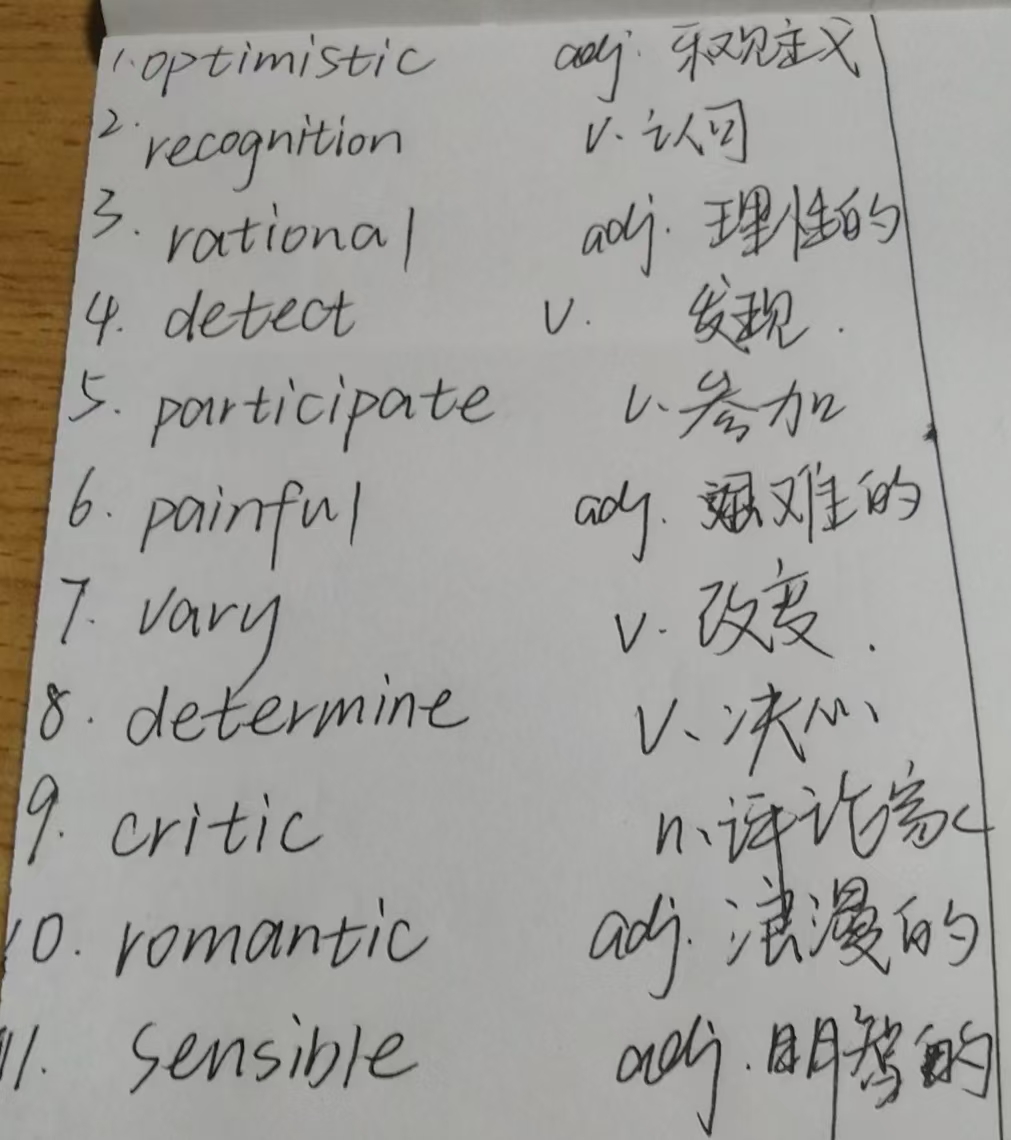 1. optimistic adj. 乐观主义
2. recognition v. 认同
3. rational adj. 理性的
4. detect v. 发现.
5. participate v. 参加
6. painful adj. 困难的
7. vary v. 改变.
8. determine v. 决心
9. critic n. 评论家
10. romantic adj. 浪漫的
11. sensible adj. 明智的